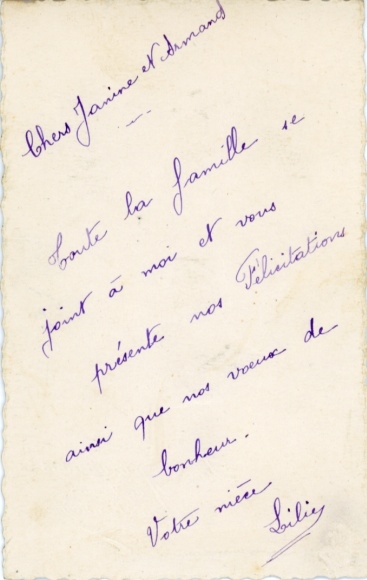 Chers Janine et Armand
Toute la famille se
joint à moi et vous
présente nos Félicitations
ainsi que nos voeux de
bonheur.
Votre nièce
Lilie